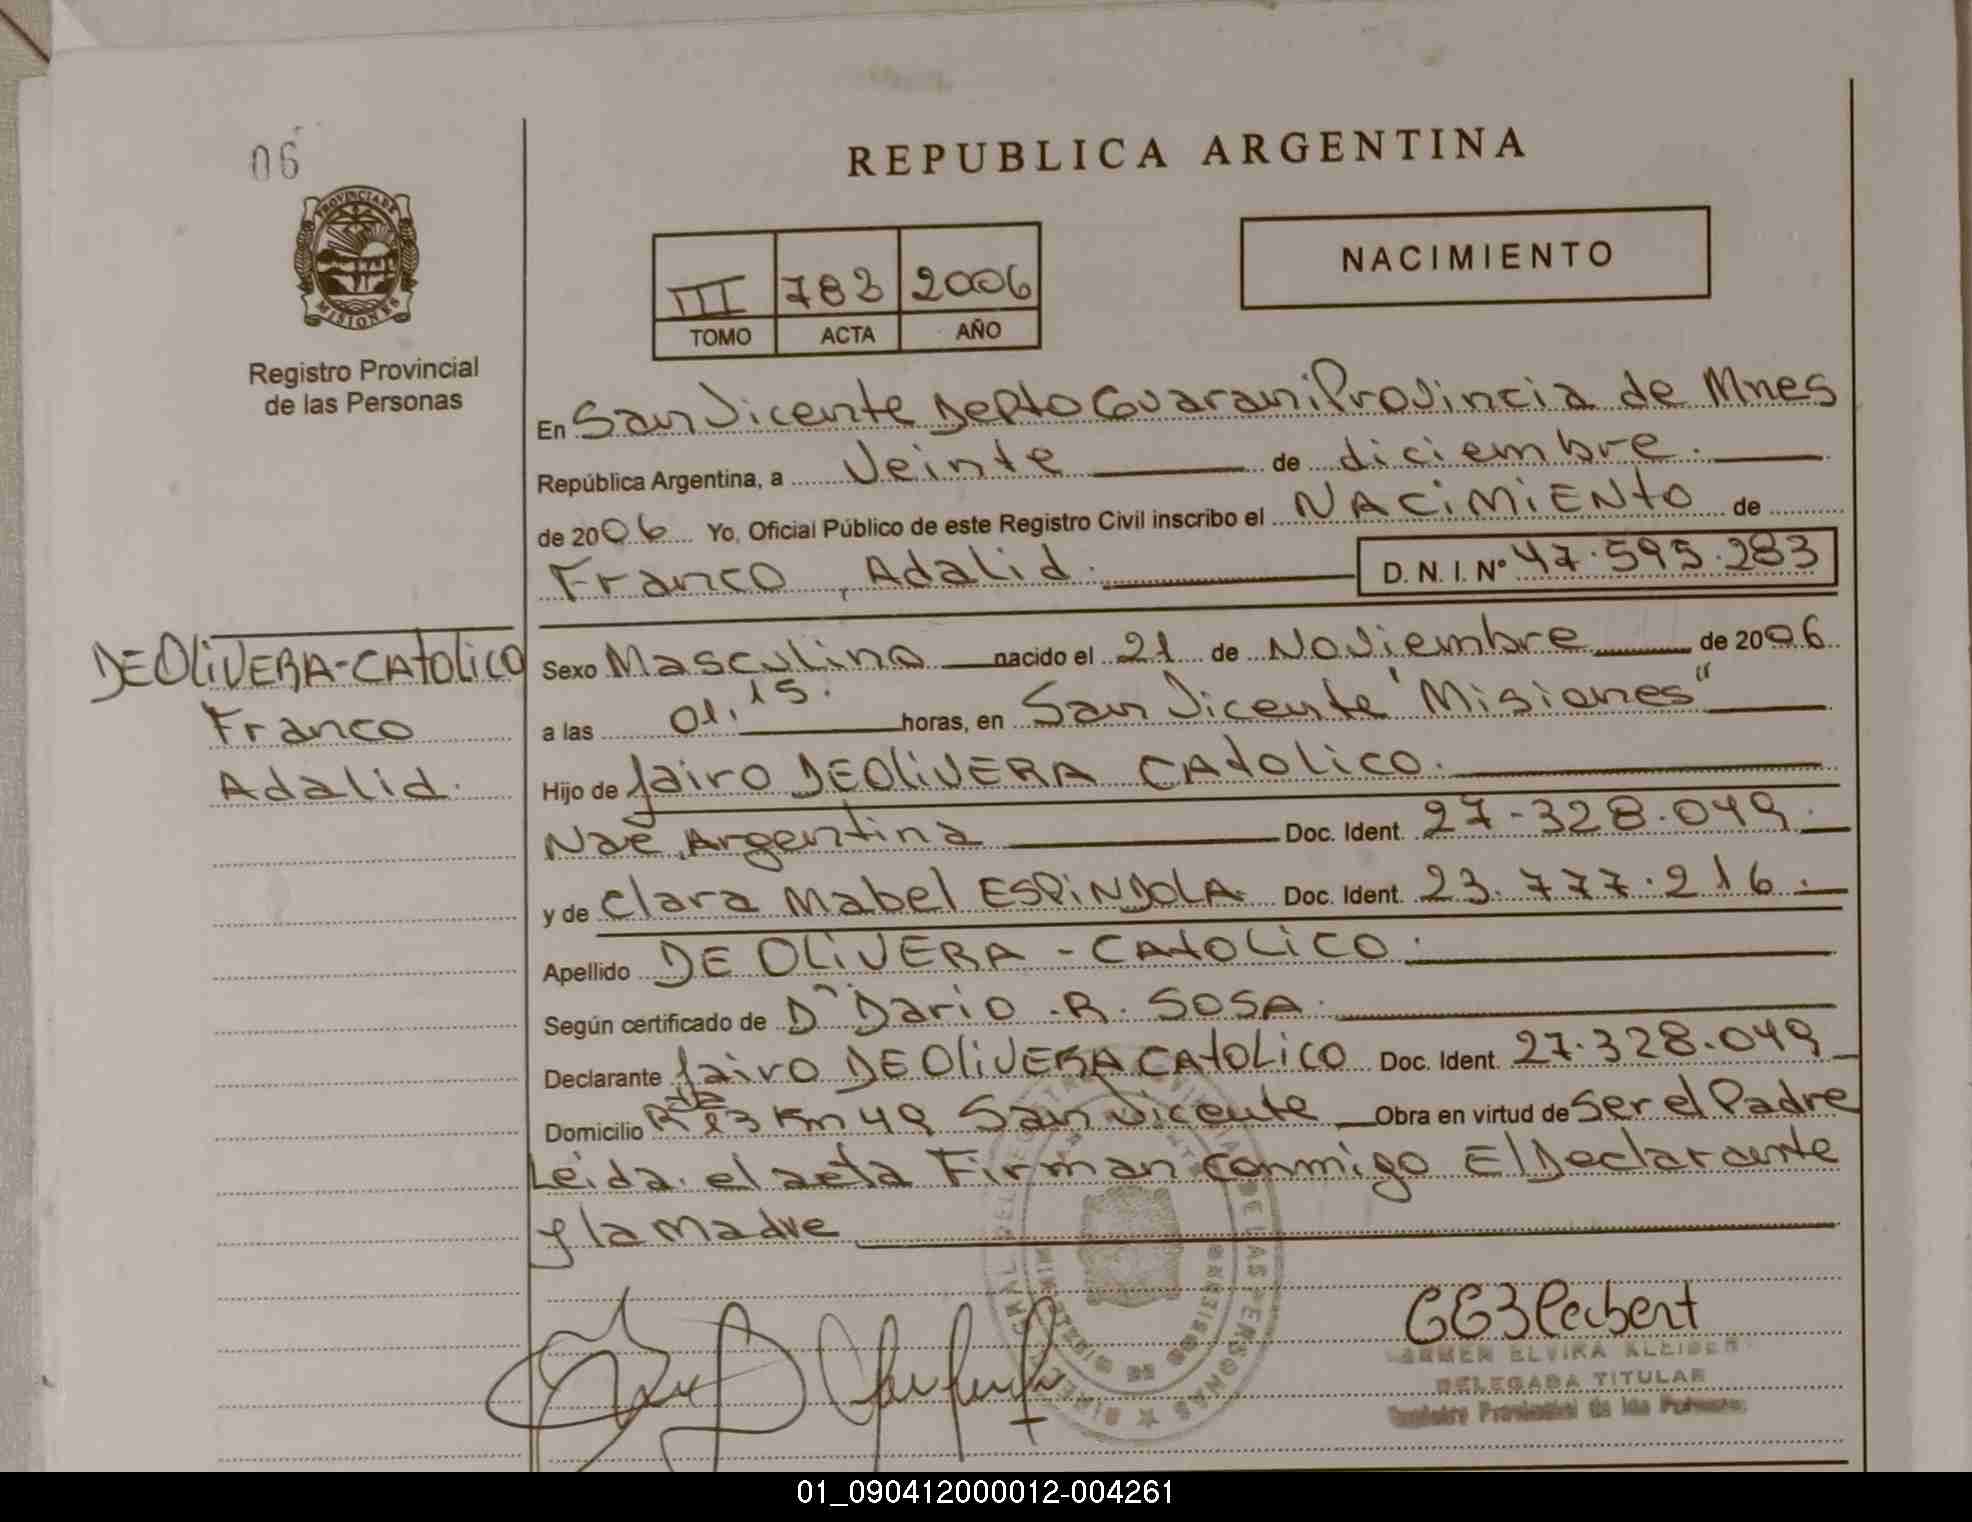 06
PROVINCIA DE
MISIONES
Registro Provincial
de las Personas
REPUBLICA ARGENTINA
III 783 2006
TOMO ACTA AÑO
NACIMIENTO
En San Vicente Depto Guarani Provincia de Mnes
República Argentina, a Veinte de diciembre.
de 2006 Yo, Oficial Público de este Registro Civil inscribo el NACiMiENto de
Franco, Adalid. D. N. I. Nº 47.595.283
DE OLiVERA-CAtoLico
Franco
Adalid.
Sexo Masculino nacido el 21 de Noviembre de 2006
a las 01,15. horas, en San Vicente "Misiones"
Hijo de Jairo DE OLiVERA CAtoLico.
Nac Argentina Doc. Ident. 27-328.049.
y de Clara Mabel ESPiNDOLA Doc. Ident. 23.777.216.
Apellido DE OLiVERA - CAtoLiCO.
Según certificado de Dr Dario .R. SOSA.
Declarante Jairo DE OLiVERA CAtoLico Doc. Ident. 27.328.049
Domicilio Rta 13 Km 49 San Vicente Obra en virtud de Ser el Padre
Leida el acta Firman conmigo El Declarante
y la madre
CARMEN ELVIRA KLEIBERT
DELEGADA TITULAR
Registro Provincial de las Personas
01_090412000012-004261